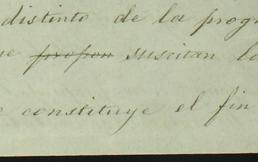 distinto de la progr
e propon suscitan lo
e constituye el fin